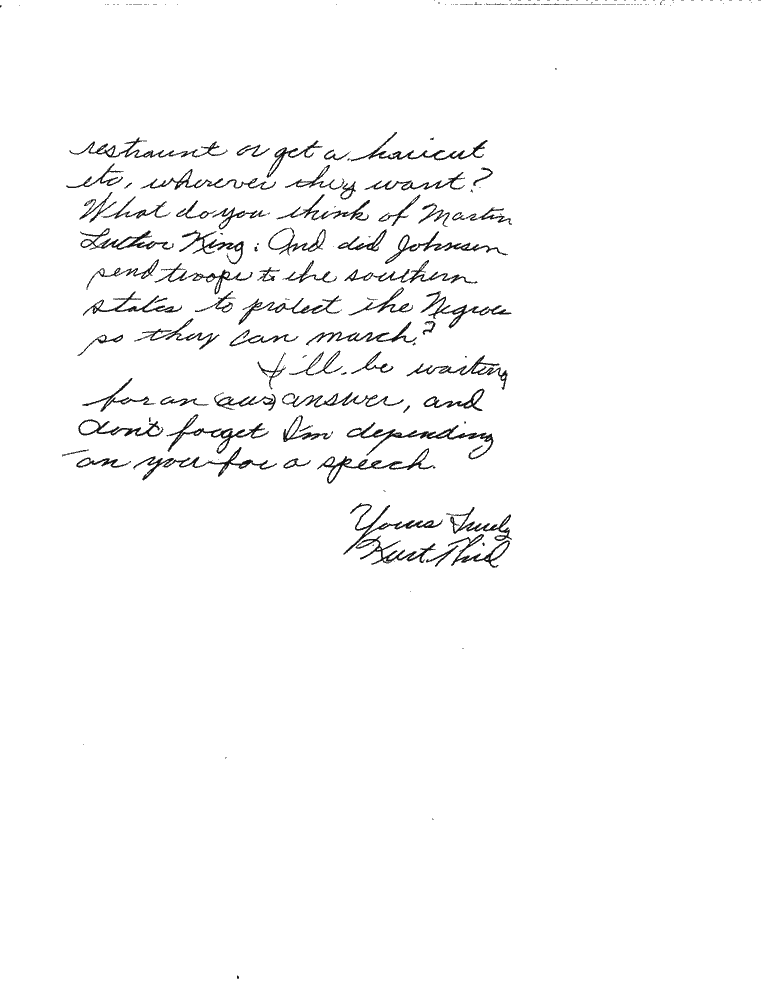 restraunt or get a haircut
etc, wherever they want?
What do you think of Martin
Luther King. And did Johnson
send troops to the southern
states to protect the Negroes
so they can march?
I'll be waiting
for an answer, and
don't forget I'm depending
on you for a speech.
Yours Truly
Kurt